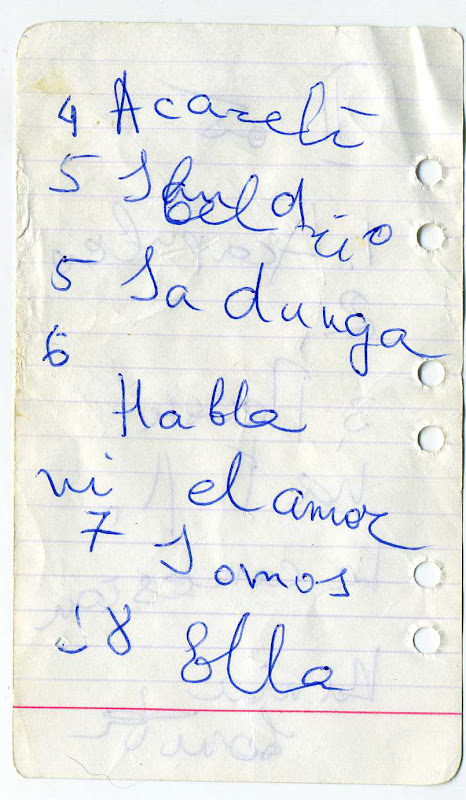 4 Acareli
5 Isabel d
rio
5 Sadunga
6
Habla
ni el amor
7 Somos
8 Ella